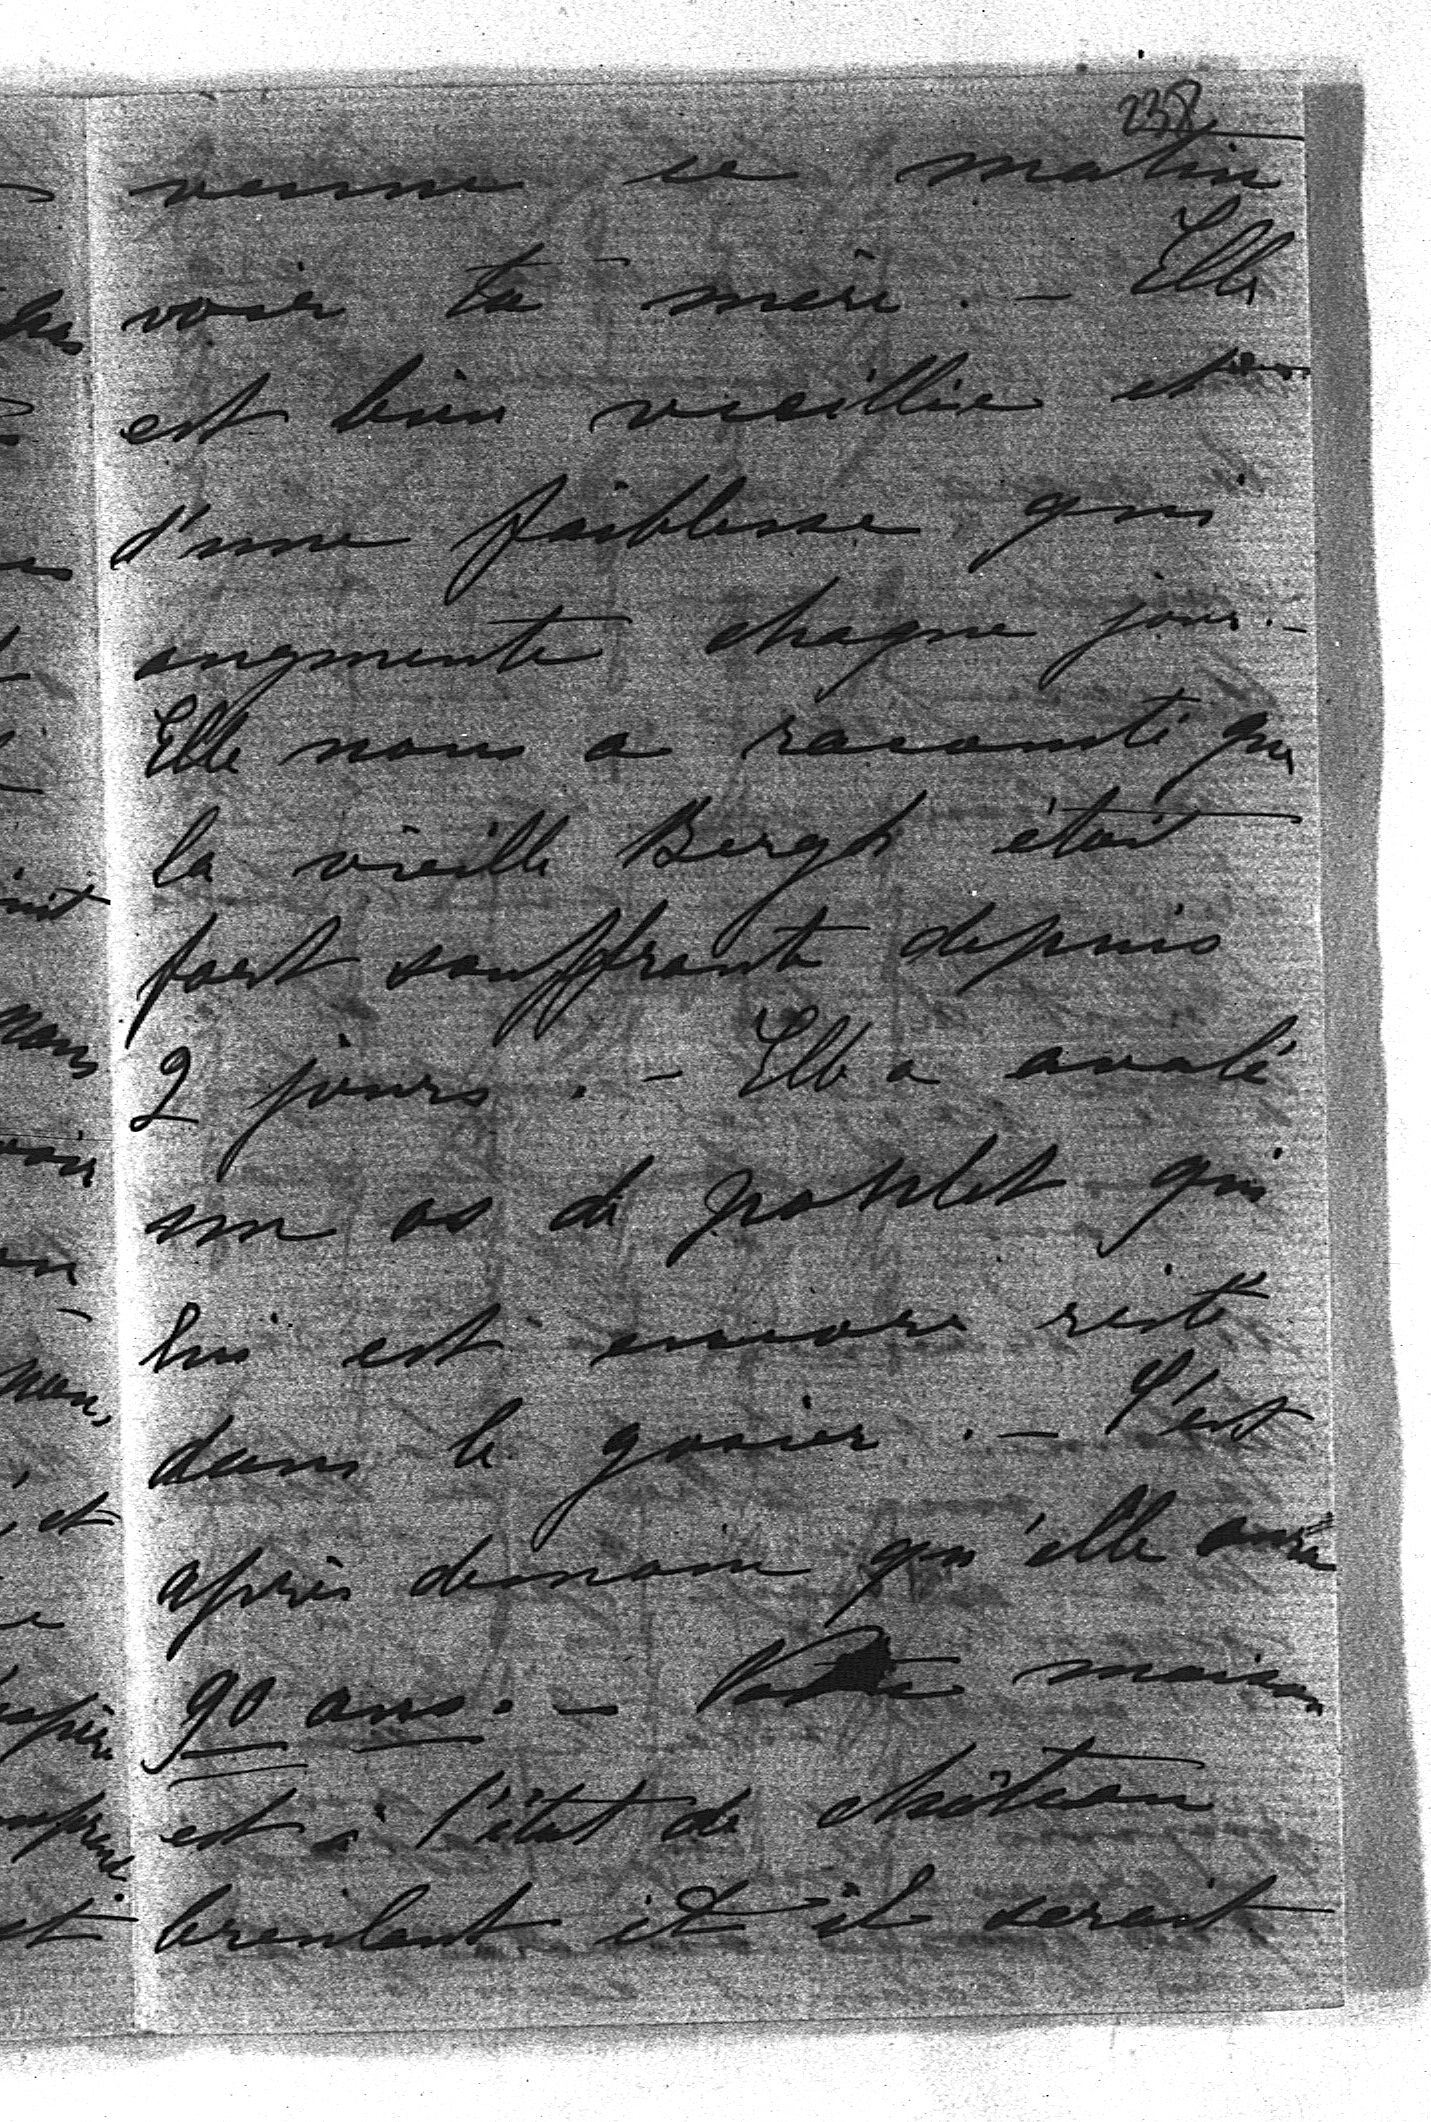 238
venue ce matin
voir ta mère. — Elle
est bien vieillie et
d'une faiblesse qui
augmente chaque jour. —
Elle nous a raconté que
la vieille Bergh était
fort souffrante depuis
2 jours. — Elle a avalé
un os de poulet qui
lui est encore resté
dans le gosier. — C'est
après demain qu'elle aura
90 ans. — Votre maison
est à l'état de château
branlant et il serait